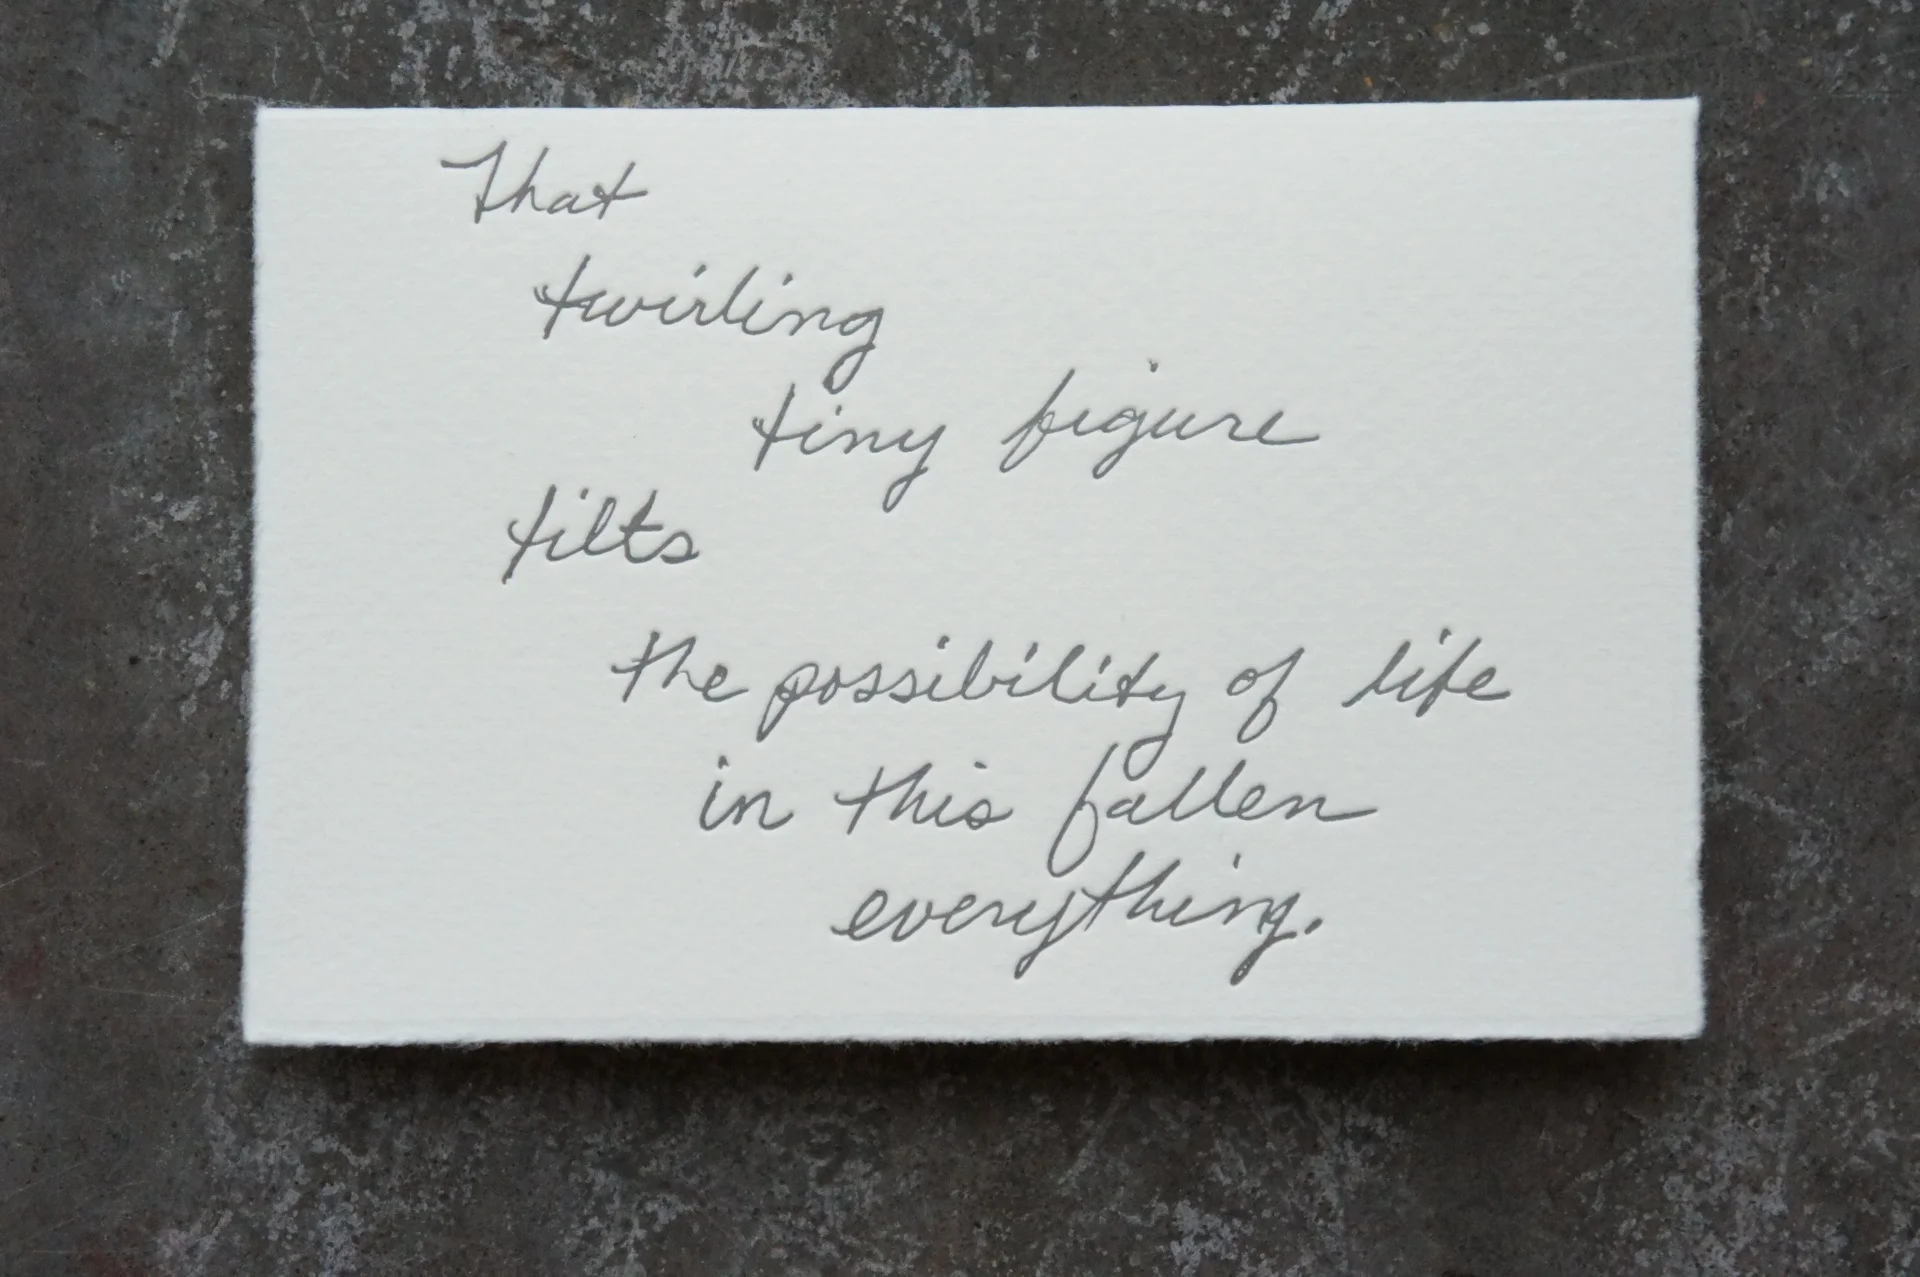 That
twirling
tiny figure
tilts
the possibility of life
in this fallen
everything.